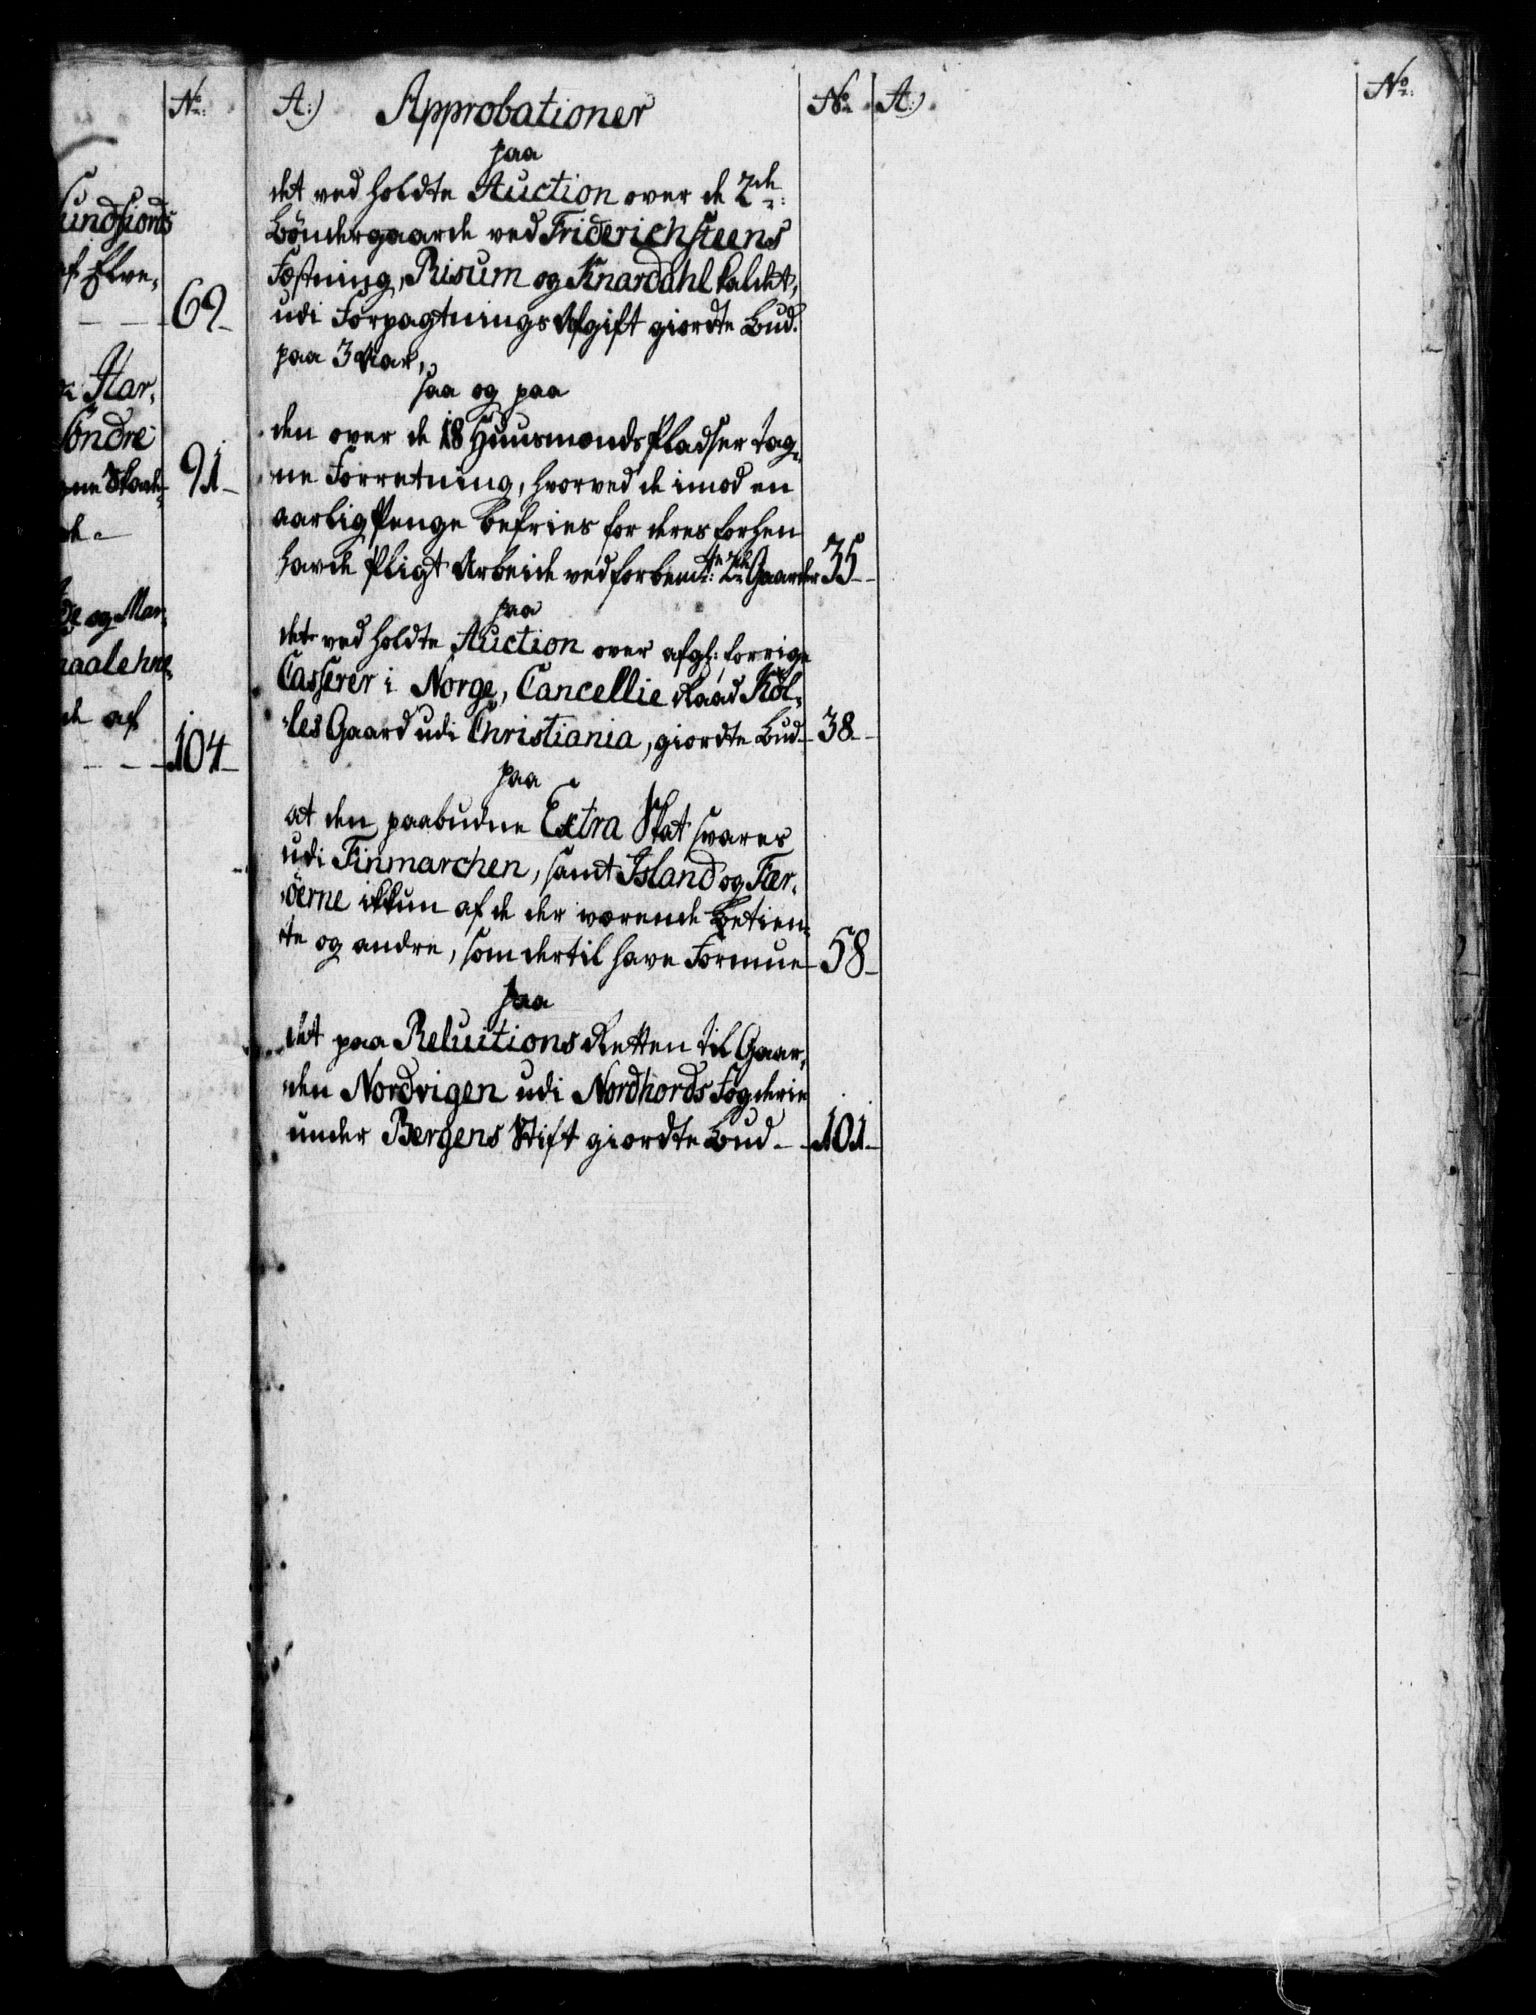 No:
undfiords
af Elve,
69
Har,
Söndre
91
og Mar,
de af
104
A:) Approbationer No: A:) No:
paa
det ved holdte Auction over de 2de:
Bøndergaarde ved Friderichsteens
Fæstning, Risum og Knardahl kaldet,
udi Forpagtnings Afgift giordte Bud.
paa 3 Aar,
saa og paa
den over de 18 Huusmands Pladser tag,
ne Forretning, hvorved de imod en
aarlig Penge befries for deres forhen
havde Pligt Arbeide ved forbemte: 2de Gaarder 35
paa
det ved holdte Auction over afg: forrige
Casserer i Norge, Cancellie Raad Köl,
les Gaard udi Christiania, giordte Bud 38
paa
at den paabudne Extra Skat svares
udi Finmarchen, samt Island og Fær,
öerne ikkun af de der værende Betien,
te og andre, som dertil have Formue 58
paa
det paa Reluitions Retten til Gaar,
den Nordvigen udi Nordhords Fogderie
under Bergens Stift giordte Bud 101